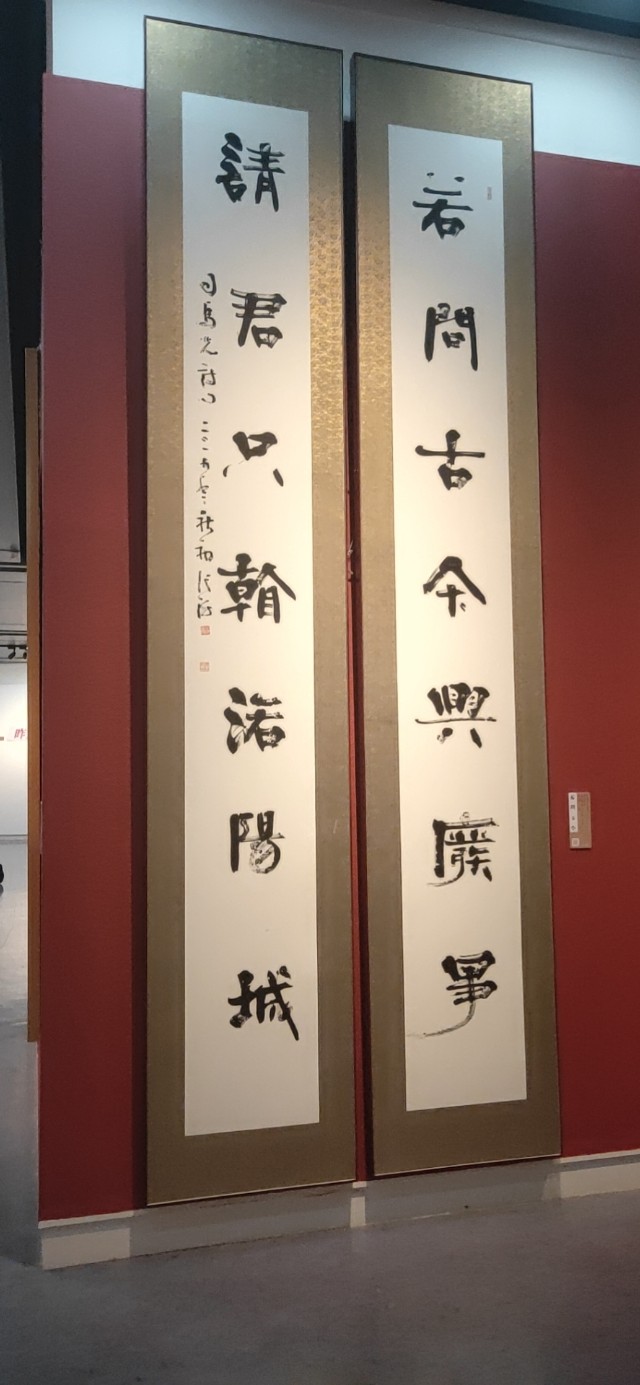 若問古今興廢事
請君只看洛陽城
司馬光詩句 二〇一五年
昨